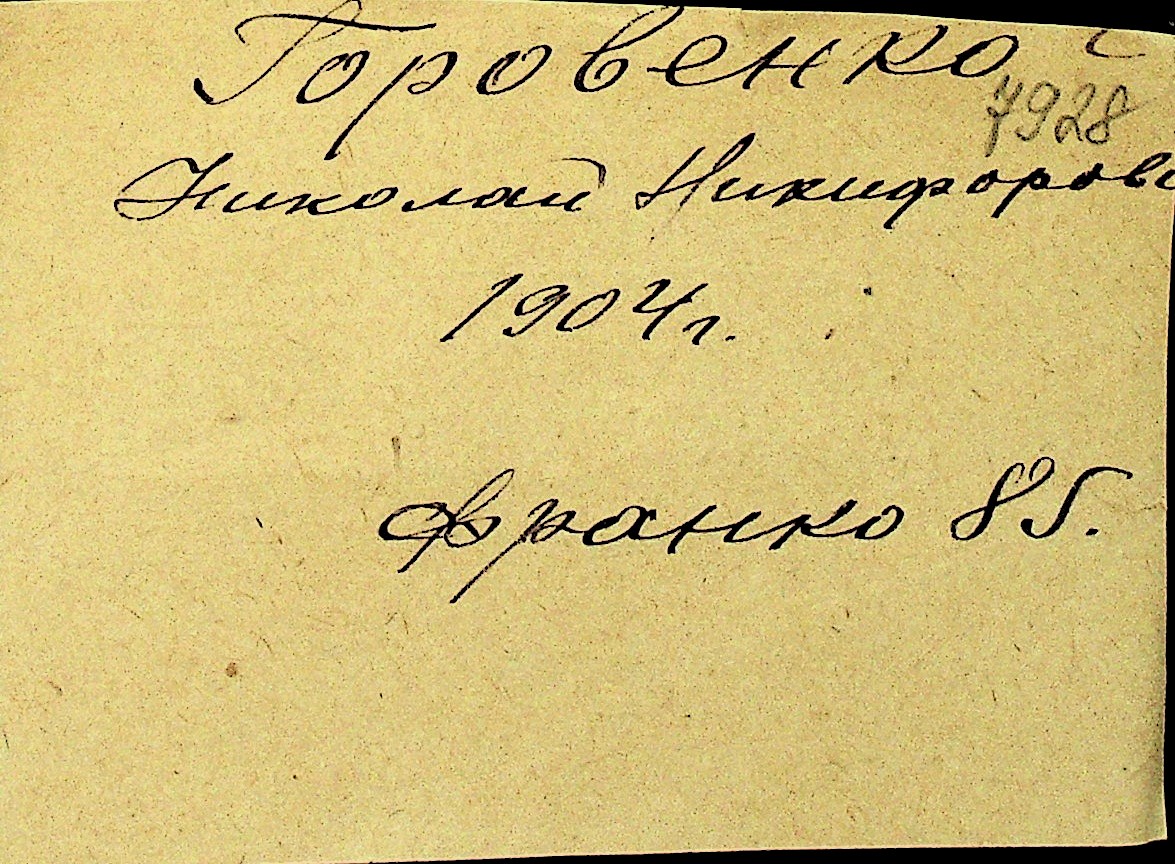 Горовенко
7928
Николай Никифоров
1904г.
Франко 85.